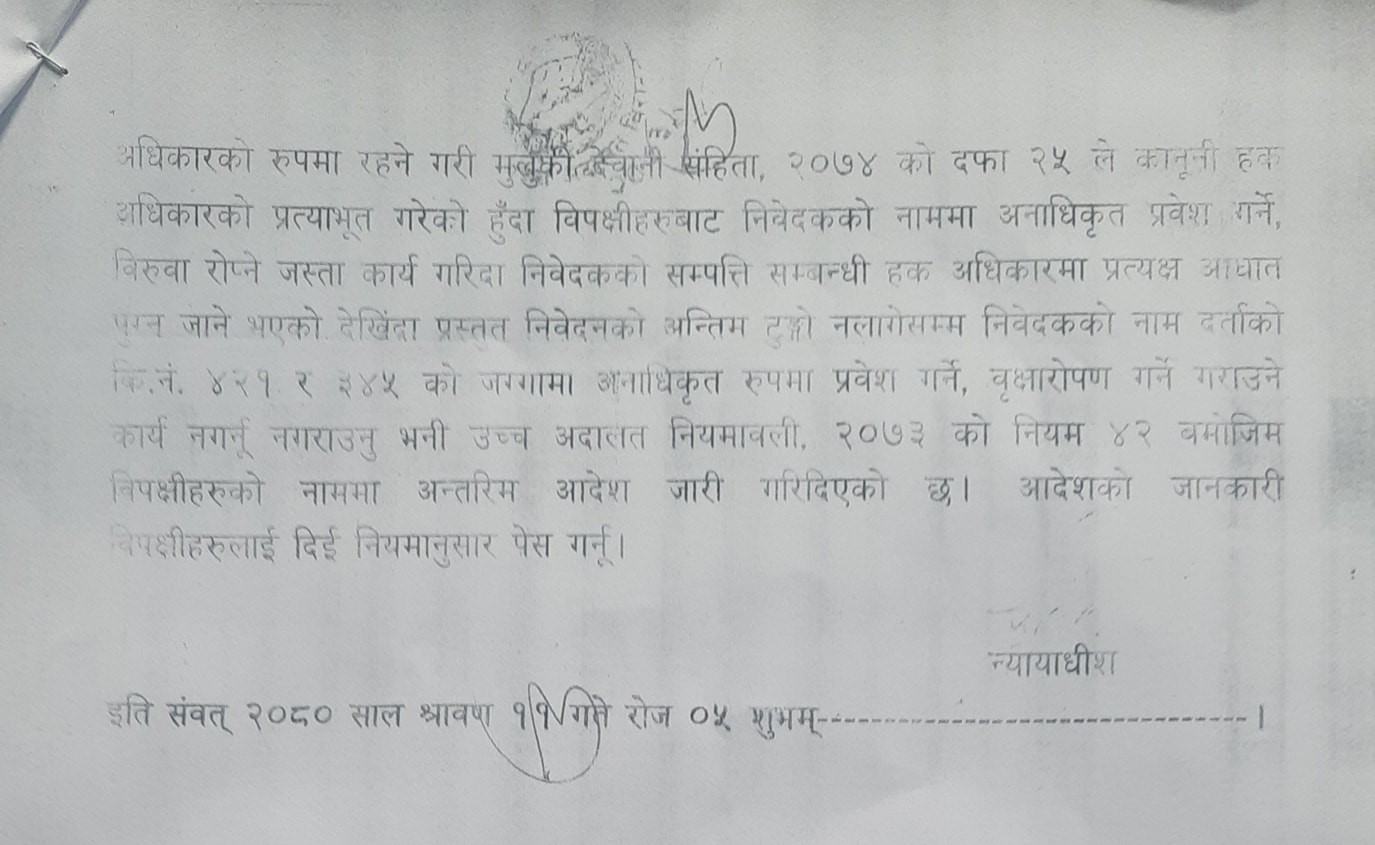 अधिकारको रुपमा रहने गरी मुलुकी देवानी संहिता, २०७४ को दफा २५ ले कानूनी हक
अधिकारको प्रत्याभूत गरेको हुँदा विपक्षीहरुबाट निवेदकको नाममा अनाधिकृत प्रवेश गर्ने,
विरुवा रोप्ने जस्ता कार्य गरिदा निवेदकको सम्पत्ति सम्बन्धी हक अधिकारमा प्रत्यक्ष आघात
पुग्न जाने भएको देखिंदा प्रस्तुत निवेदनको अन्तिम टुङ्गो नलागेसम्म निवेदकको नाम दर्ताको
कि.नं. ४२१ र ३४५ को जग्गामा अनाधिकृत रुपमा प्रवेश गर्ने, वृक्षारोपण गर्ने गराउने
कार्य नगर्नू नगराउनु भनी उच्च अदालत नियमावली, २०७३ को नियम ४२ बमोजिम
विपक्षीहरुको नाममा अन्तरिम आदेश जारी गरिदिएको छ। आदेशको जानकारी
विपक्षीहरुलाई दिई नियमानुसार पेस गर्नू।
न्यायाधीश
इति संवत् २०८० साल श्रावण ११ गते रोज ०५ शुभम्------------------------------।